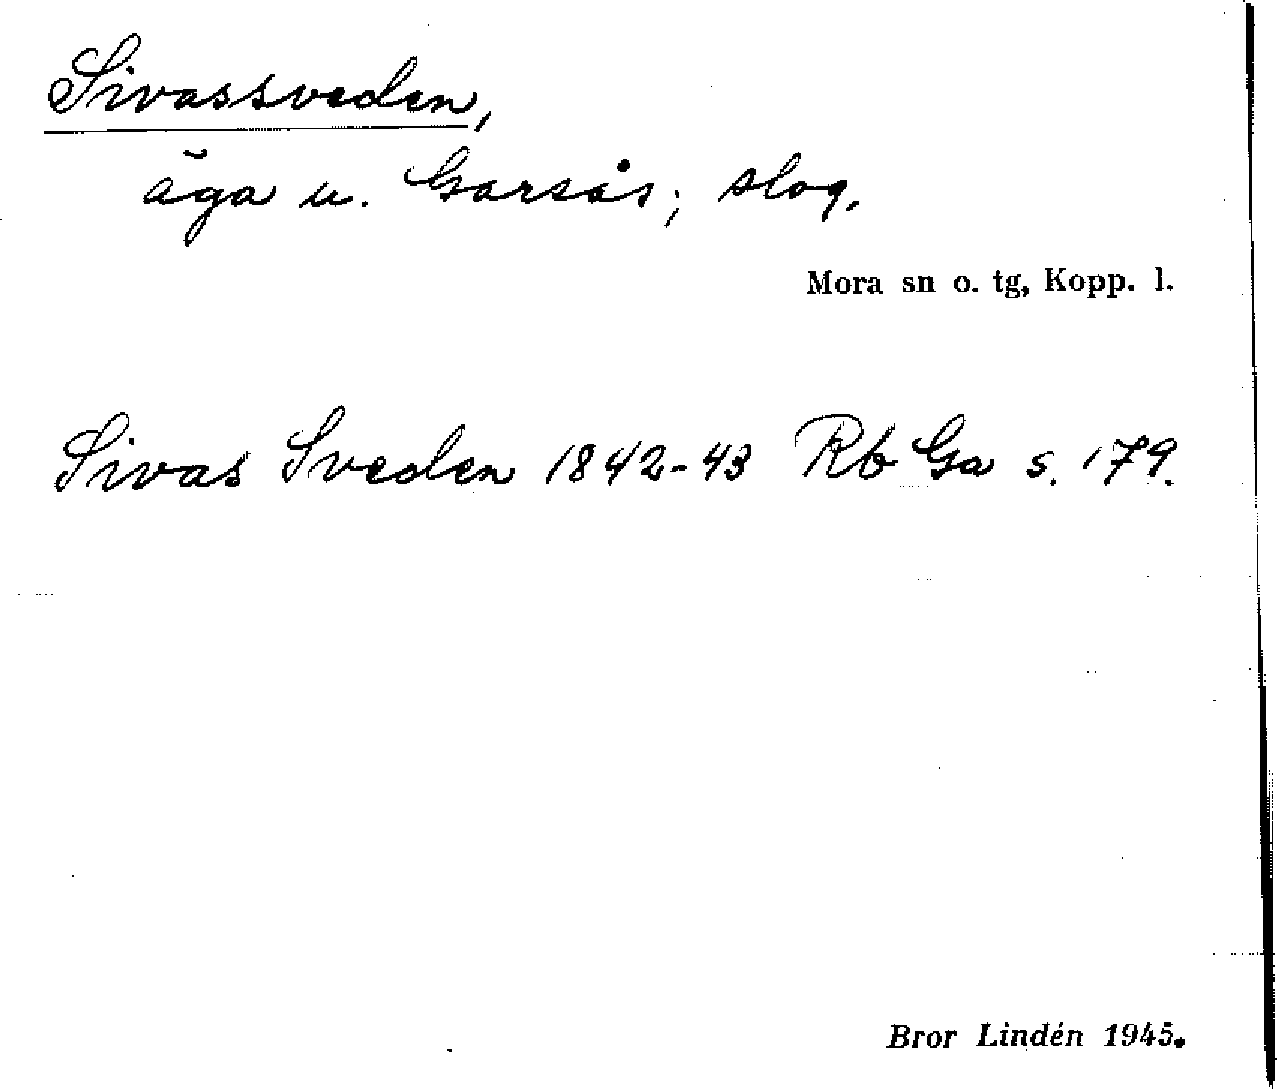 Sivassveden,
äga u. Garsås; slog.
Mora sn o. tg, Kopp. l.
Sivas Sveden 1842-43 Rb Ga s. 179.
Bror Lindén 1945.